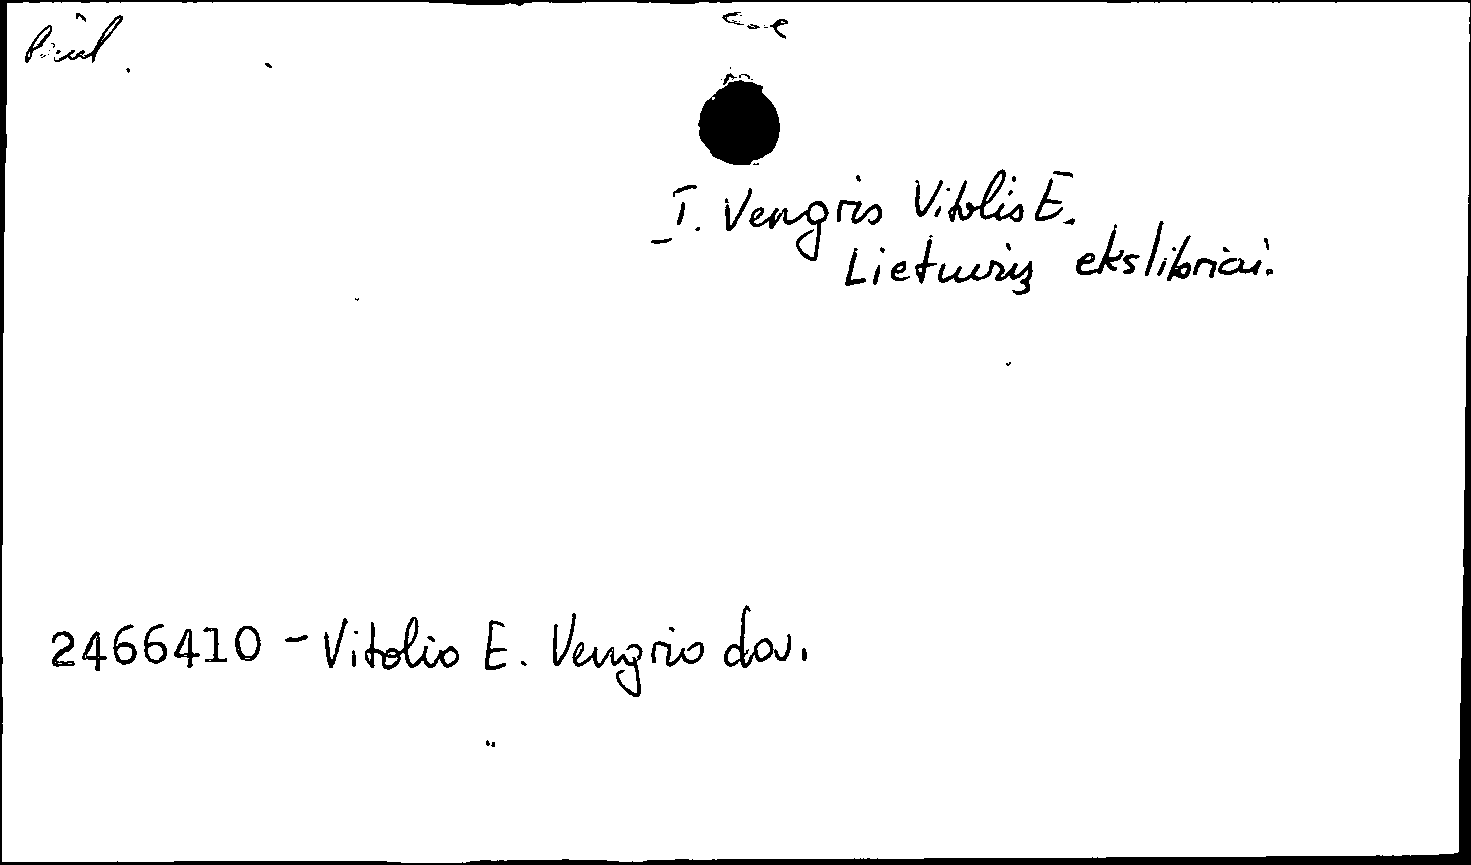 I. Vengris Vitolis E.
Lietuvių ekslibriai.
2466410 - Vitolio E. Vengrio dov.